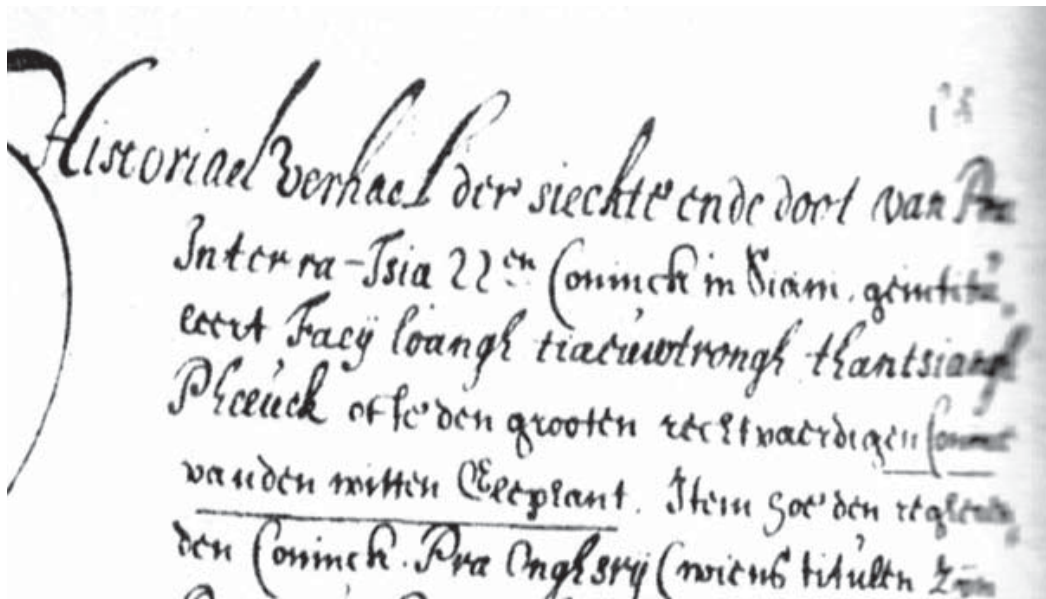 Historiael Verhael der sieckte ende doot van Pra
Interra-Tsia 22en Coninck in Siam, geintitu-
leert Facij loangh tiaeuwtrongh thantsiangh
Pheeuck ofte den grooten rechtvaerdigen Coninck
vanden witten Eleephant. Item hoe den regeeren
den Coninck. Pra Onghsrij (wiens titulen zijn